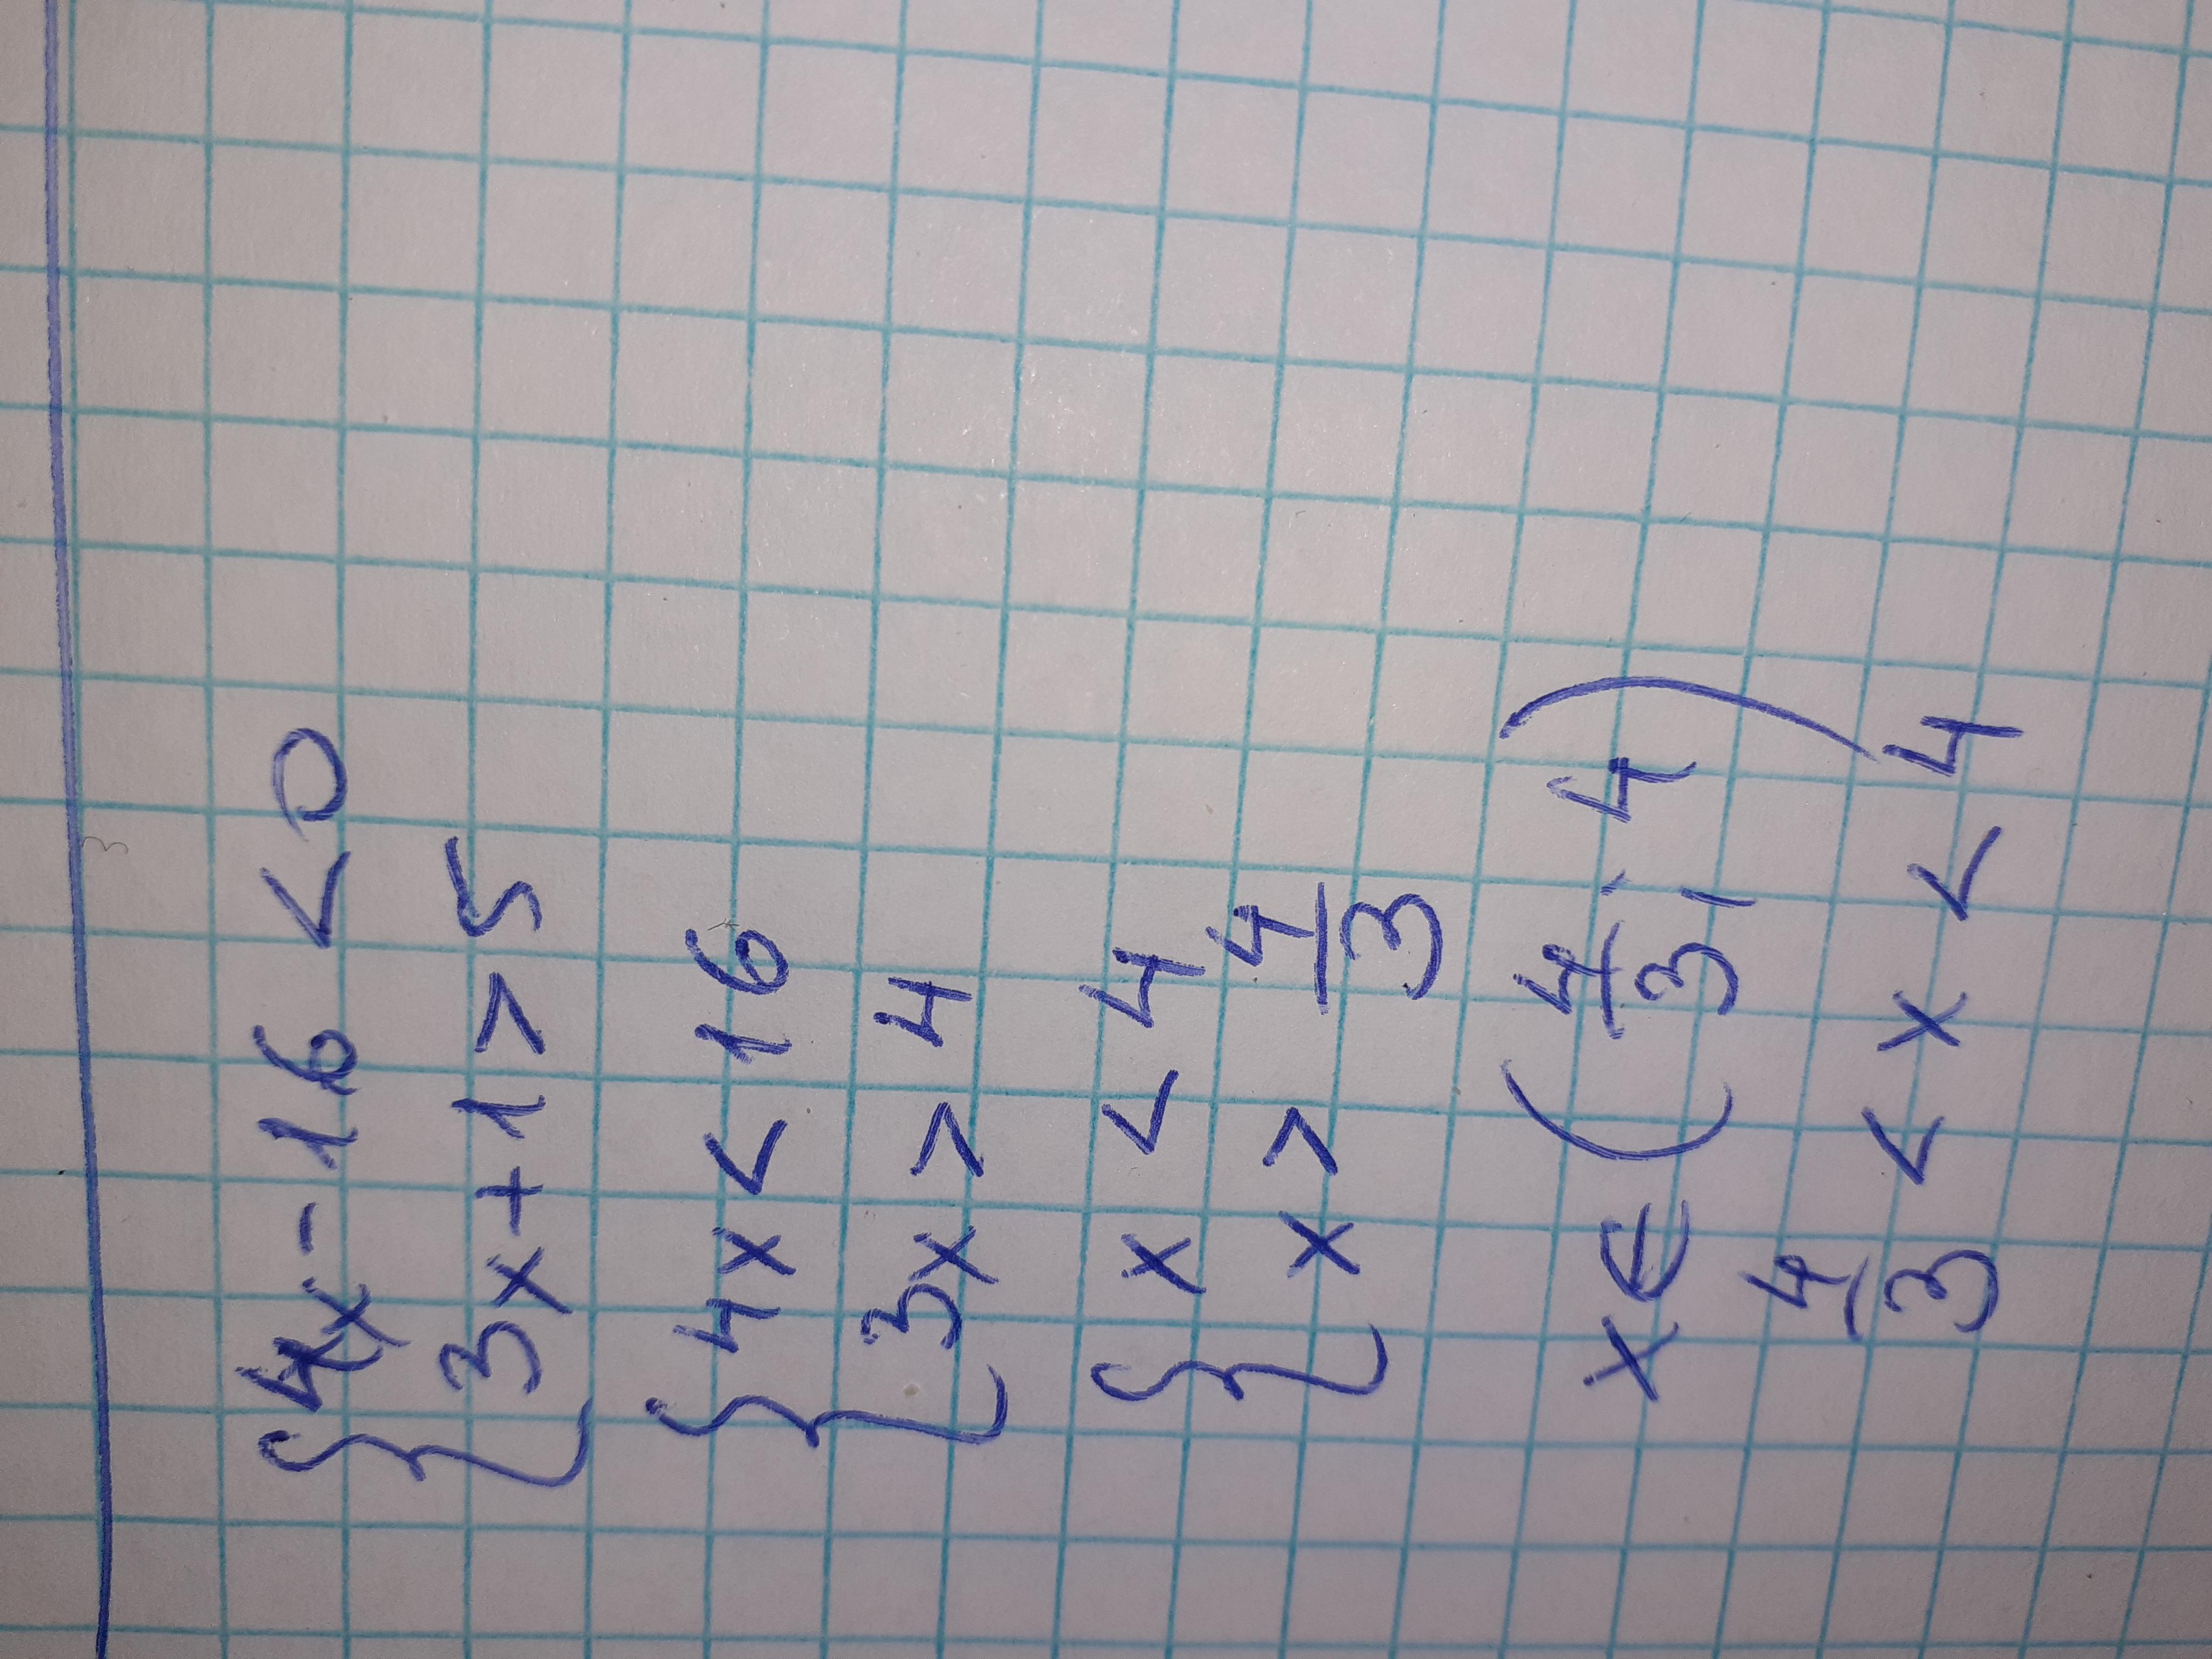 { 4x - 16 < 0
3x + 1 > 5
{ 4x < 16
3x > 4
{ x < 4
x > 4/3
x ∈ ( 4/3 ; 4 )
4/3 < x < 4